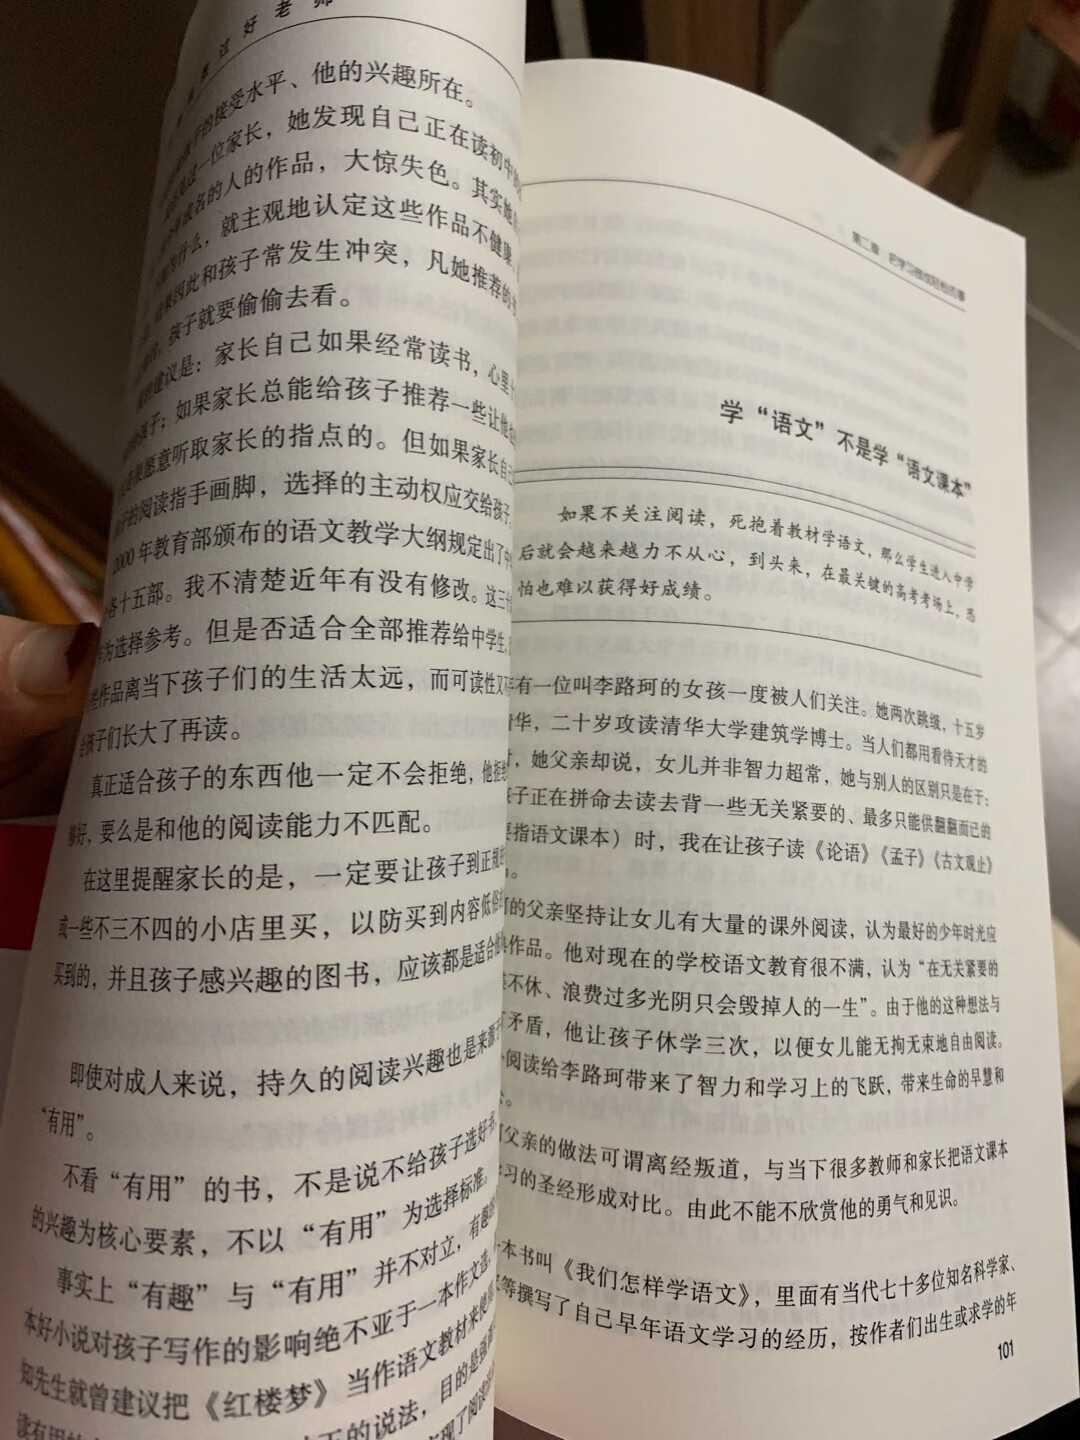 过好老师
的接受水平、他的兴趣所在。
过一位家长，她发现自己正在读初中的
成名的人的作品，大惊失色。其实她
为什么，就主观地认定这些作品不健康
因此和孩子常发生冲突，凡她推荐的
孩子就要偷偷去看。
建议是：家长自己如果经常读书，心里
孩子；如果家长总能给孩子推荐一些让他
愿意听取家长的指点的。但如果家长自己
子的阅读指手画脚，选择的主动权应交给孩子
2000年教育部颁布的语文教学大纲规定出了中
各十五部。我不清楚近年有没有修改。这三十
作为选择参考。但是否适合全部推荐给中学生
些作品离当下孩子们的生活太远，而可读性又
孩子们长大了再读。
真正适合孩子的东西他一定不会拒绝，他拒绝
够好，要么是和他的阅读能力不匹配。
在这里提醒家长的是，一定要让孩子到正规
或一些不三不四的小店里买，以防买到内容低俗
买到的，并且孩子感兴趣的图书，应该都是适合他
即使对成人来说，持久的阅读兴趣也是来源于
“有用”。
不看“有用”的书，不是说不给孩子选好书，
的兴趣为核心要素，不以“有用”为选择标准。
事实上“有趣”与“有用”并不对立，有趣的
本好小说对孩子写作的影响绝不亚于一本作文选，
知先生就曾建议把《红楼梦》当作语文教材来使用
读有用的
的说法，目的是强
了阅读
第二章 把学习做成轻松的事
学“语文”不是学“语文课本”
如果不关注阅读，死抱着教材学语文，那么学生进入中学
后就会越来越力不从心，到头来，在最关键的高考考场上，恐
怕也难以获得好成绩。
年有一位叫李路珂的女孩一度被人们关注。她两次跳级，十五岁
清华，二十岁攻读清华大学建筑学博士。当人们都用看待天才的
时，她父亲却说，女儿并非智力超常，她与别人的区别只是在于：
孩子正在拼命去读去背一些无关紧要的、最多只能供翻翻而已的
要指语文课本）时，我在让孩子读《论语》《孟子》《古文观止》
的父亲坚持让女儿有大量的课外阅读，认为最好的少年时光应
典作品。他对现在的学校语文教育很不满，认为“在无关紧要的
不休、浪费过多光阴只会毁掉人的一生”。由于他的这种想法与
矛盾，他让孩子休学三次，以便女儿能无拘无束地自由阅读。
阅读给李路珂带来了智力和学习上的飞跃，带来生命的早慧和
父亲的做法可谓离经叛道，与当下很多教师和家长把语文课本
学习的圣经形成对比。由此不能不欣赏他的勇气和见识。
一本书叫《我们怎样学语文》，里面有当代七十多位知名科学家、
等撰写了自己早年语文学习的经历，按作者们出生或求学的年
101